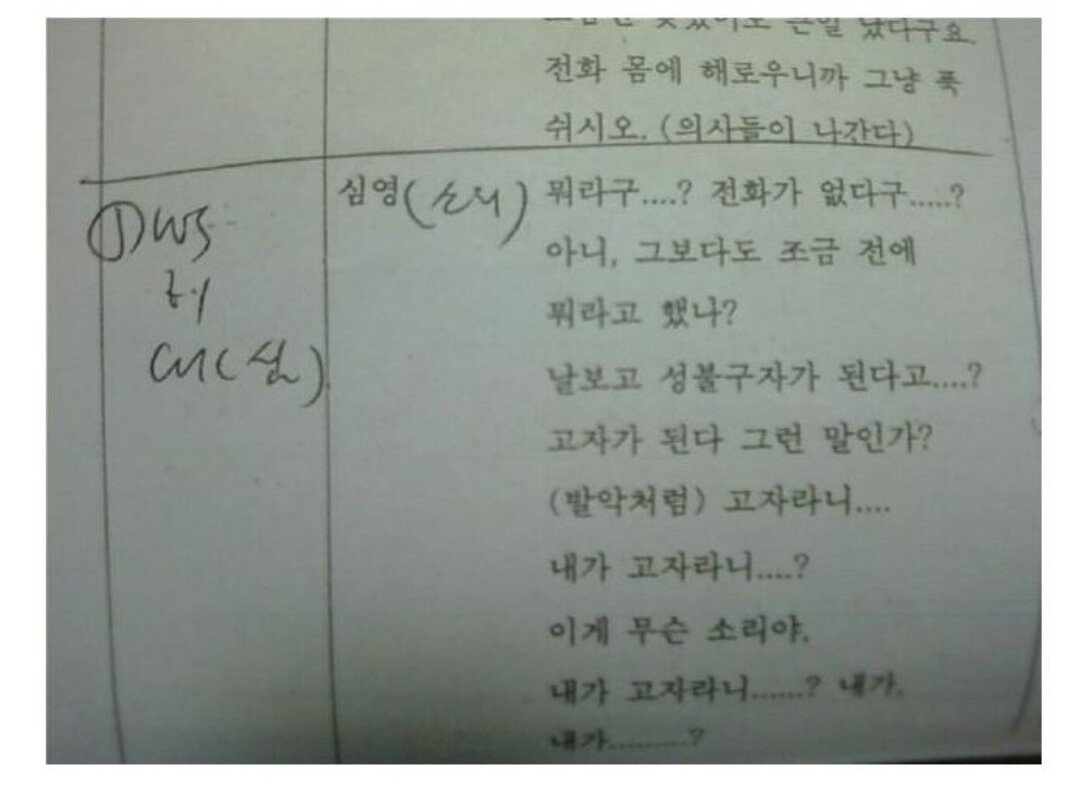 큰일 났다구요.
전화 몸에 해로우니까 그냥 푹
쉬시오. (의사들이 나간다)
심영(소리) 뭐라구....? 전화가 없다구.....?
① WS
아니, 그보다도 조금 전에
뭐라고 했나?
CU(심)
날보고 성불구자가 된다고....?
고자가 된다 그런 말인가?
(발악처럼) 고자라니....
내가 고자라니....?
이게 무슨 소리야.
내가 고자라니......? 내가.
내가..........?